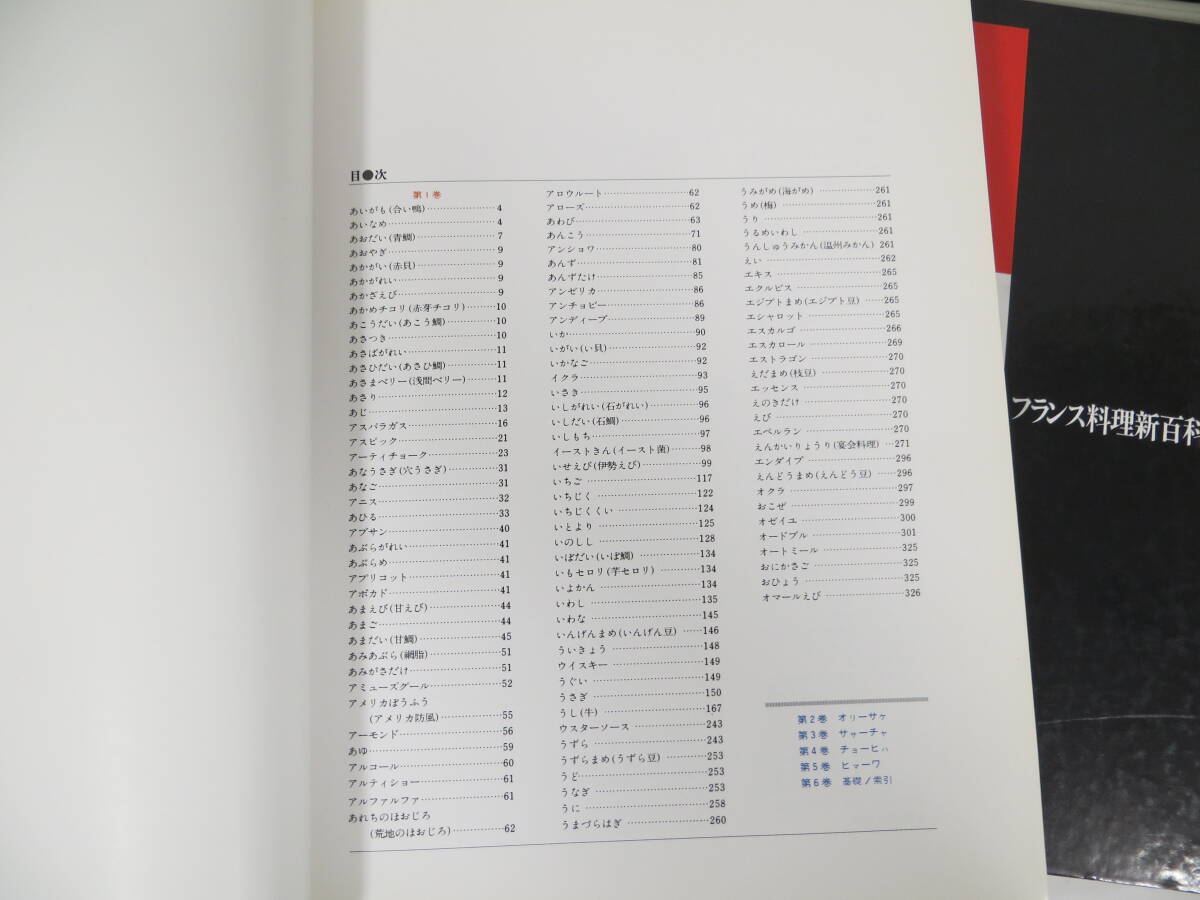 目●次
第1巻
あいがも(合い鴨)…………………4
あいなめ…………………4
あおだい(青鯛)…………………7
あおやぎ…………………9
あかがい(赤貝)…………………9
あかがれい…………………9
あかざえび…………………9
あかめチコリ(赤芽チコリ)………10
あこうだい(あこう鯛)……………10
あさつき…………………10
あさばがれい…………………11
あさひだい(あさひ鯛)……………11
あさまベリー(浅間ベリー)………11
あさり…………………12
あじ…………………13
アスパラガス…………………16
アスピック…………………21
アーティチョーク…………………23
あなうさぎ(穴うさぎ)……………31
あなご…………………31
アニス…………………32
あひる…………………33
アブサン…………………40
あぶらがれい…………………41
あぶらめ…………………41
アプリコット…………………41
アボカド…………………41
あまえび(甘えび)…………………44
あまご…………………44
あまだい(甘鯛)…………………45
あみあぶら(網脂)…………………51
あみがさだけ…………………51
アミューズグール…………………52
アメリカぼうふう
(アメリカ防風)……………55
アーモンド…………………56
あゆ…………………59
アルコール…………………60
アルティショー…………………61
アルファルファ…………………61
あれちのほおじろ
(荒地のほおじろ)……………62
アロウルート…………………62
アローズ…………………62
あわび…………………63
あんこう…………………71
アンショワ…………………80
あんず…………………81
あんずたけ…………………85
アンゼリカ…………………86
アンチョビー…………………86
アンディーブ…………………89
いか…………………90
いがい(い貝)…………………92
いかなご…………………92
イクラ…………………93
いさき…………………95
いしがれい(石がれい)……………96
いしだい(石鯛)…………………96
いしもち…………………97
イーストきん(イースト菌)………98
いせえび(伊勢えび)………………99
いちご…………………117
いちじく…………………122
いちじくくい…………………124
いとより…………………125
いのしし…………………128
いぼだい(いぼ鯛)…………………134
いもセロリ(芋セロリ)……………134
いよかん…………………134
いわし…………………135
いわな…………………145
いんげんまめ(いんげん豆)……146
ういきょう…………………148
ウイスキー…………………149
うぐい…………………149
うさぎ…………………150
うし(牛)…………………167
ウスターソース…………………243
うずら…………………243
うずらまめ(うずら豆)……………253
うど…………………253
うなぎ…………………253
うに…………………258
うまづらはぎ…………………260
うみがめ(海がめ)…………………261
うめ(梅)…………………261
うり…………………261
うるめいわし…………………261
うんしゅうみかん(温州みかん) 261
えい…………………262
エキス…………………265
エクルビス…………………265
エジプトまめ(エジプト豆)……265
エシャロット…………………265
エスカルゴ…………………266
エスカロール…………………269
エストラゴン…………………270
えだまめ(枝豆)…………………270
エッセンス…………………270
えのきだけ…………………270
えび…………………270
エペルラン…………………270
えんかいりょうり(宴会料理)…271
エンダイブ…………………296
えんどうまめ(えんどう豆)……296
オクラ…………………297
おこぜ…………………299
オゼイユ…………………300
オードブル…………………301
オートミール…………………325
おにかさご…………………325
おひょう…………………325
オマールえび…………………326
第2巻 オリーサケ
第3巻 サャーチャ
第4巻 チョーヒハ
第5巻 ヒマーワ
第6巻 基礎/索引
フランス料理新百科